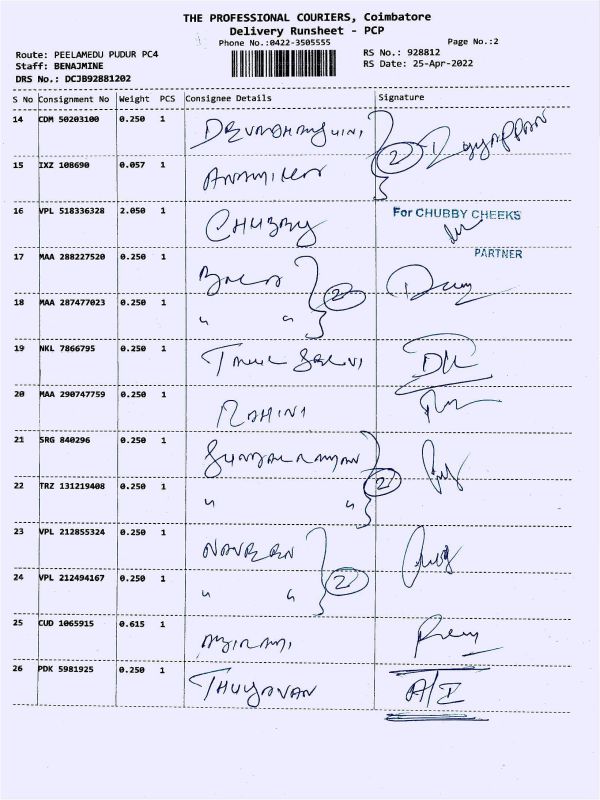 THE PROFESSIONAL COURIERS, Coimbatore
Delivery Runsheet - PCP
Phone No.:0422-3505555
Page No.:2
Route: PEELAMEDU PUDUR PC4
RS No.: 928812
Staff: BENAJMINE
RS Date: 25-Apr-2022
DRS No.: DCJB92881202
S No Consignment No Weight PCS Consignee Details Signature
14 CDM 50203100 0.250 1
2
15 IXZ 108690 0.057 1
16 VPL 518336328 2.050 1 CHUBBY For CHUBBY CHEEKS
PARTNER
17 MAA 288227520 0.250 1
2
18 MAA 287477023 0.250 1 " "
19 NKL 7866795 0.250 1
20 MAA 290747759 0.250 1 ROHINI
21 SRG 840296 0.250 1
2
22 TRZ 131219408 0.250 1 " "
23 VPL 212855324 0.250 1 NAVEEN
2
24 VPL 212494167 0.250 1 " "
25 CUD 1065915 0.615 1 ABIRAMI
26 PDK 5981925 0.250 1 THUYAVAN